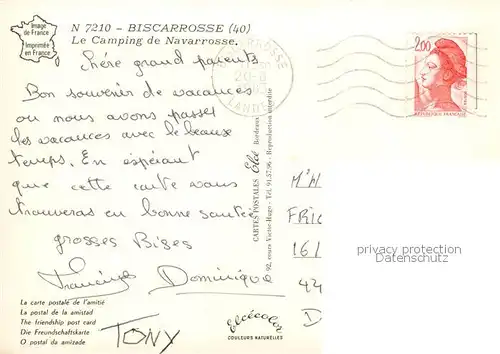 Image
de France
Imprimée
en France
N 7210 - BISCARROSSE (40)
Le Camping de Navarrosse.
Chère grand parents
Bon souvenir de vacances
ou nous avons passer
les vacances avec le beaux
temps. En espérant
que cette carte vous
trouveras en bonne santée
grosses Bises
Dominique
TONY
La carte postale de l'amitié
La postal de la amistad
The friendship post card
Die Freundschaftskarte
O postal da amizade
elcécolor
COULEURS NATURELLES
CARTES POSTALES Elcé Bordeaux
92, cours Victor-Hugo - Tél. 91.57.96 - Reproduction interdite
LANDES
2,00
REPUBLIQUE FRANÇAISE
FRIC
16/
privacy protection
Datenschutz